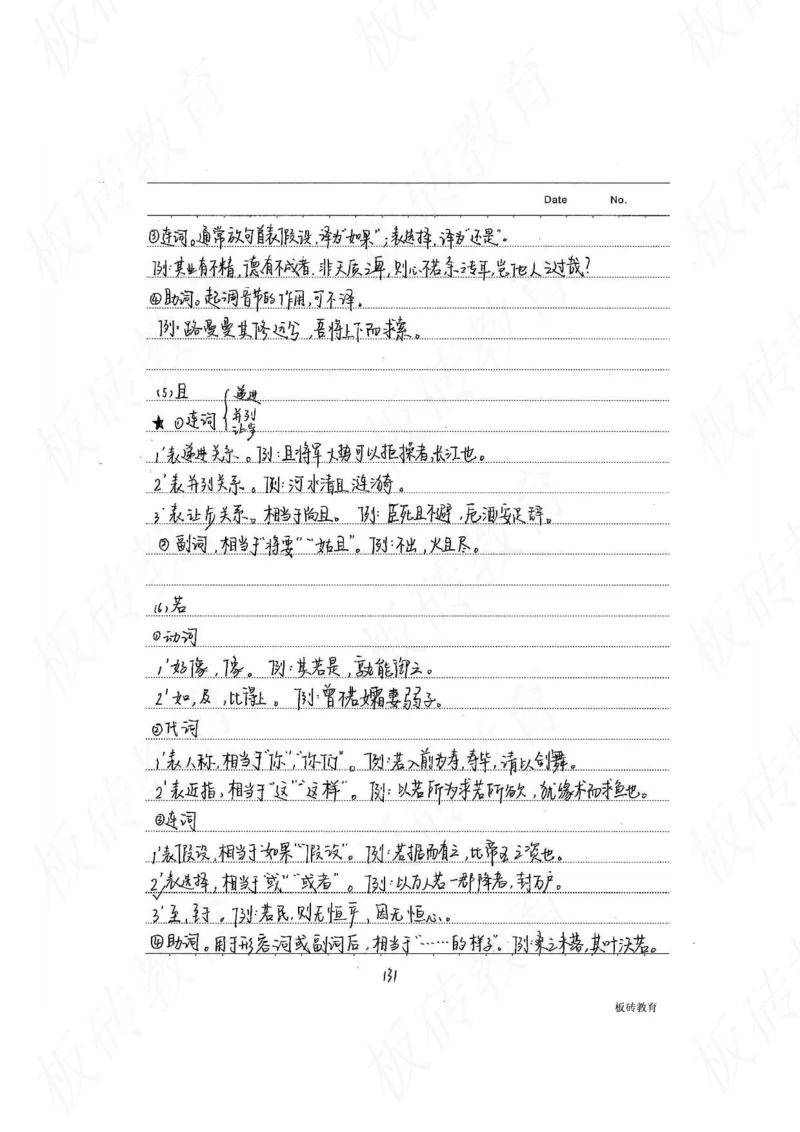 Date No.
③连词。通常放句首表假设,译为"如果";表选择,译为"还是"。
例:其业有不精,德有不成者,非天质之卑,则心不若余之专耳,岂他人之过哉?
④助词。起调音节的作用,可不译。
例:路曼曼其修远兮,吾将上下而求索。
(5)且
★ ①连词 { 递进 并列 让步
1'表递进关系。例:且将军大势可以拒操者,长江也。
2'表并列关系。例:河水清且涟漪。
3'表让步关系。相当于尚且。 例:臣死且不避,卮酒安足辞。
②副词,相当于"将要""姑且"。例:不出,火且尽。
(6)若
①动词
1'好像,像。 例:其若是,孰能御之。
2'如,及,比得上。 例:曾不若孀妻弱子。
②代词
1'表人称,相当于"你","你们"。例:若入前为寿,寿毕,请以剑舞。
2'表近指,相当于"这""这样"。例:以若所为求若所欲,犹缘木而求鱼也。
③连词
1'表假设,相当于"如果""假设"。例:若据而有之,此帝王之资也。
2'表选择,相当于"或""或者"。例:以万人若一郡降者,封万户。
3'至,至于。例:若民,则无恒产,因无恒心。
④助词。用于形容词或副词后,相当于"……的样子"。例:桑之未落,其叶沃若。
131
板砖教育